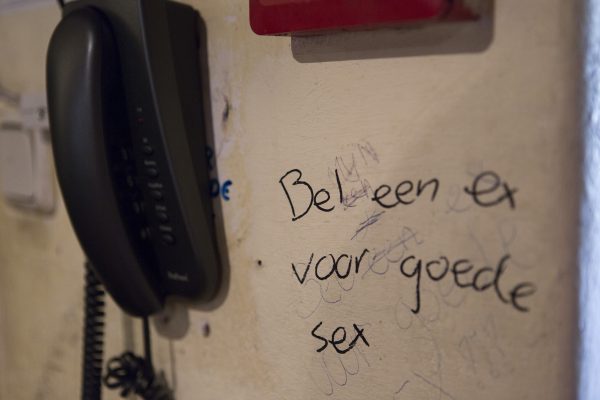 Bel een ex
voor goede
sex